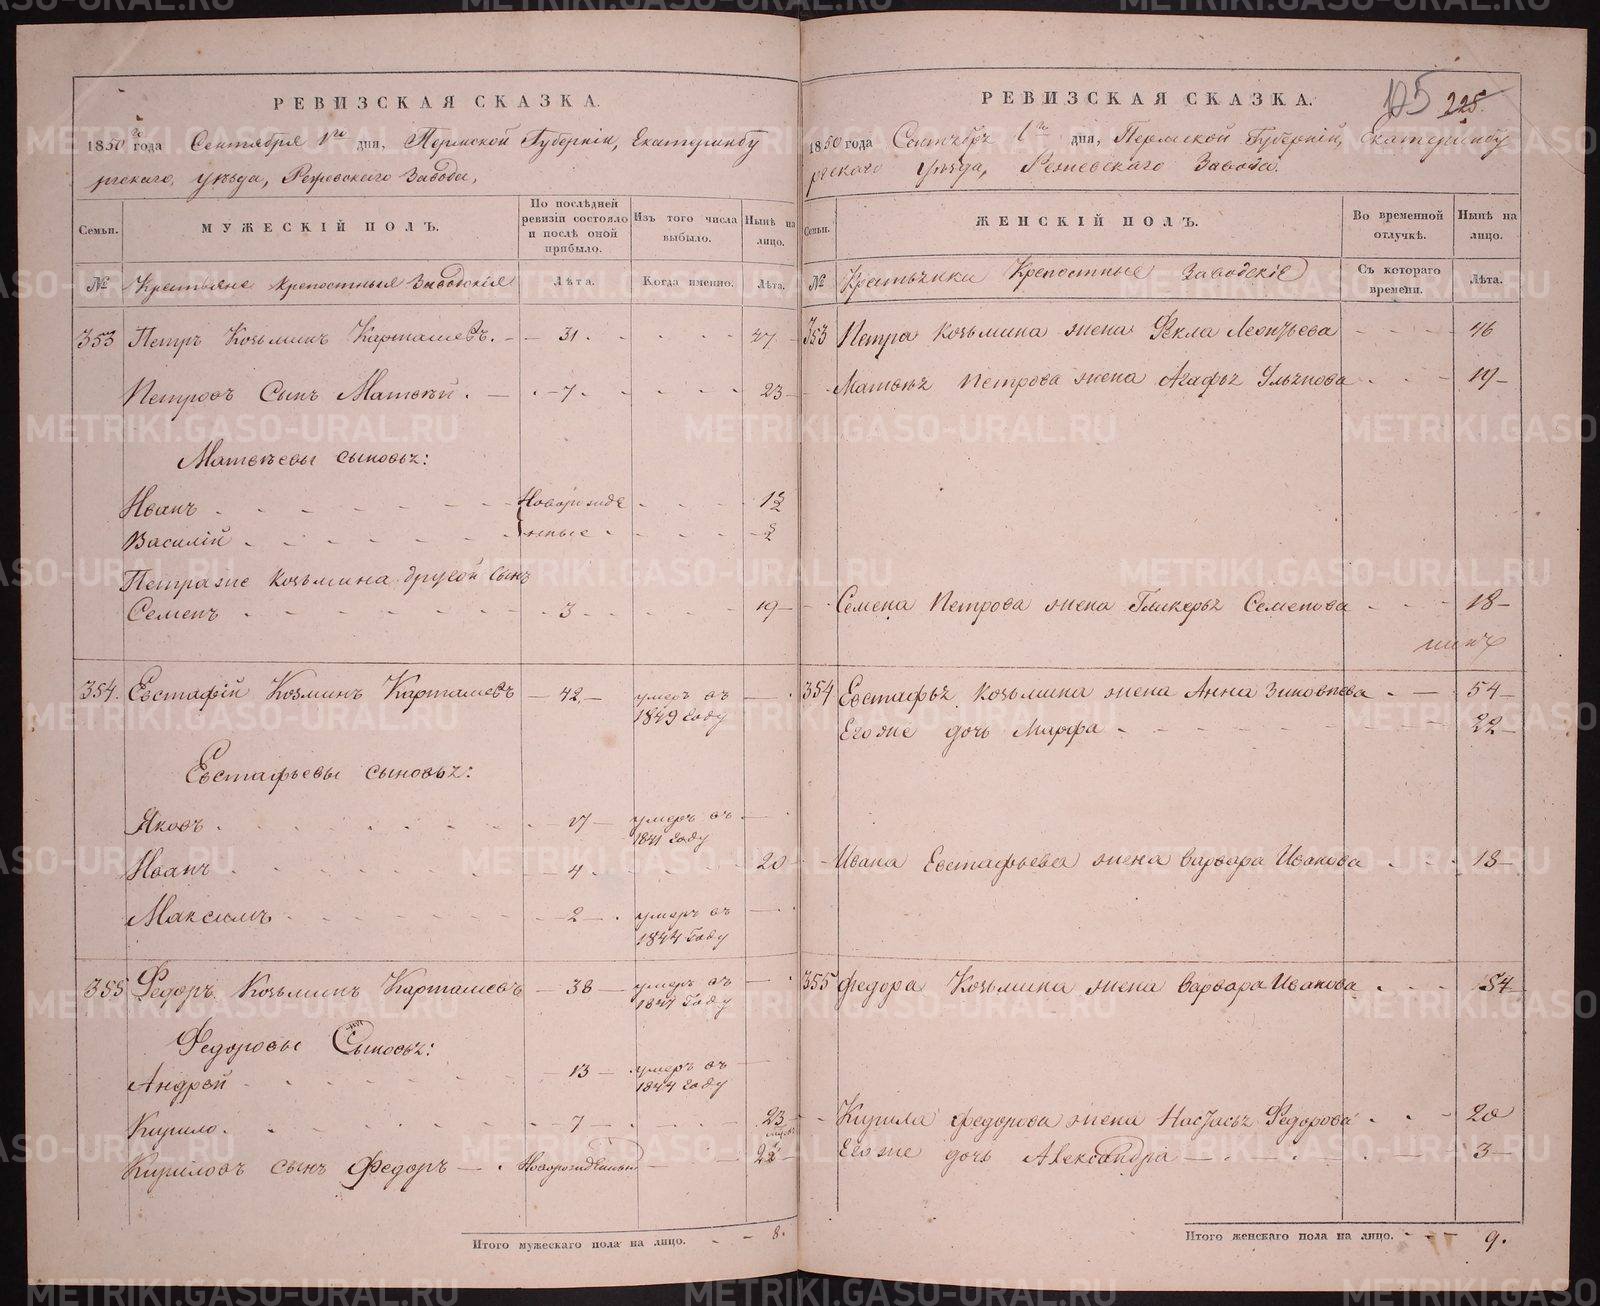 РЕВИЗСКАЯ СКАЗКА.
1850го года Сентября 1го дня, Пермской Губерніи, Екатеринбу
ргскаго, уѣзда, Режевскаго Завода,
Семьи.
МУЖЕСКІЙ ПОЛЪ.
По послѣдней ревизіи состояло и послѣ оной прибыло.
Изъ того числа выбыло.
Нынѣ на лицо.
№
Крестьяне крепостныя Заводскія
Лѣта.
Когда именно.
Лѣта.
353 Петръ Козьминъ Карташевъ. 31
Петровъ Сынъ Матвѣй. 7 23
Матвѣевы сыновья:
Иванъ Новорожде
Василій нные
Петра же Козьмина другой сынъ
Семенъ 3 19
354. Евстафій Козминъ Карташевъ 42 умеръ въ
1849 году
Евстафьевы сыновья:
Яковъ. 17 умеръ въ
1841 году
Иванъ 4 20
Максимъ 2 умеръ въ
1844 Году
355 Федоръ Козьминъ Карташевъ 38 умеръ въ
1847 Году
Федоровы Сыновья:
Андрей 13 умеръ въ
1844 году
Кирило. 7 23
Кириловъ сынъ Федоръ Новорожденный
Итого мужескаго пола на лицо. 8.
125 225.
РЕВИЗСКАЯ СКАЗКА.
1850 года Сентября 1го дня, Пермской Губерніи, Екатеринбу
ргскаго уѣзда, Режевскаго Завода.
Семьи.
ЖЕНСКІЙ ПОЛЪ.
Во временной отлучкѣ.
Нынѣ на лицо.
№
Крестьянки Крепостные Заводскіе
Съ котораго времени.
Лѣта.
353 Петра Козьмина жена Фекла Леонтьева 46
Матвея Петрова жена Агафья Ульянова 19
Семена Петрова жена Гликерья Семенова 18
354 Евстафья Козьмина жена Анна Зиновьева 54
Его же дочь Марфа 22
Ивана Евстафьева жена Варвара Иванова 18
355 Федора Козьмина жена Варвара Иванова 54
Кирила Федорова жена Настасья Федорова 20
Его же дочь Александра 3
Итого женскаго пола на лицо. 9.
METRIKI.GASO-URAL.RU